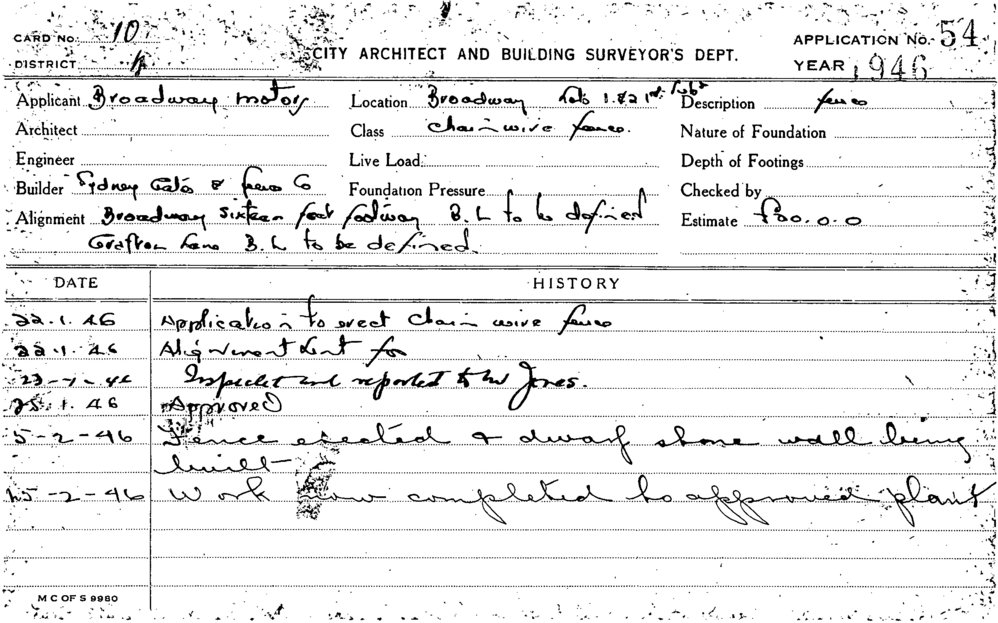 CARD No. 10 CITY ARCHITECT AND BUILDING SURVEYOR'S DEPT. APPLICATION No. 54
DISTRICT YEAR 1946
Applicant Broadway motors Location Broadway Lots 1 & 2 1st Subn Description fence
Architect Class chain wire fence. Nature of Foundation
Engineer Live Load Depth of Footings
Builder Sydney Gate & Fence Co Foundation Pressure Checked by
Alignment Broadway sixteen foot footway B. L to be defined Estimate £80.0.0
Grafton Lane B. L to be defined.
DATE HISTORY
22.1.46 Application to erect chain wire fence
22.1.46 Alignment for
23-1-46 Inspected and reported to Mr Jones.
25.1.46 Approved
5-2-46 Fence erected & dwarf stone wall being
built
15-2-46 Work now completed to approved plant
M C OF S 9980